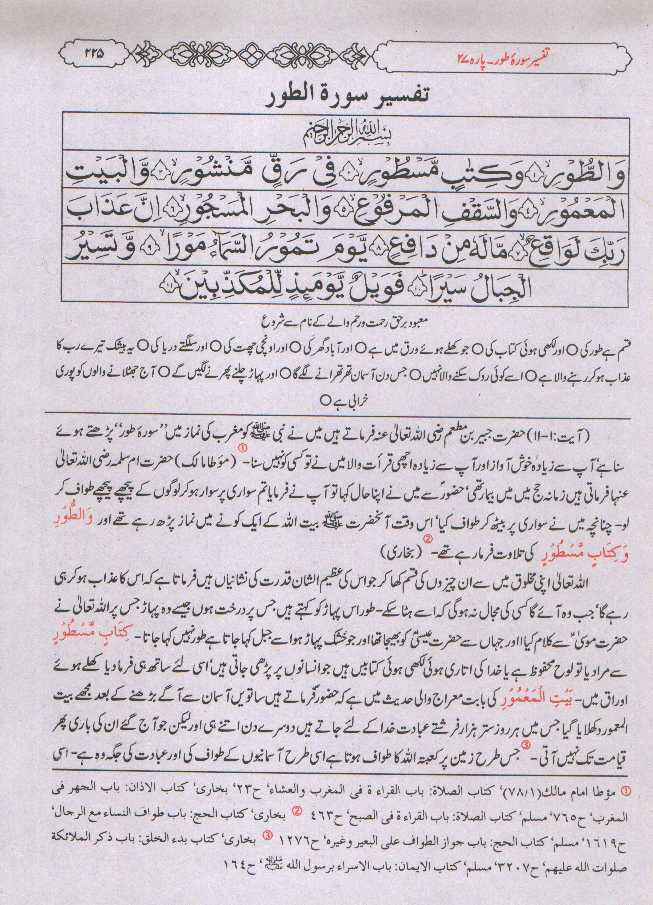 تفسیر سورۂ طور۔ پارہ ۲۷
۲۲۵
تفسیر سورۃ الطور
بِسْمِ اللّٰهِ الرَّحْمٰنِ الرَّحِيْمِ
وَالطُّوْرِ ۙ۱ وَكِتٰبٍ مَّسْطُوْرٍ ۙ۲ فِيْ رَقٍّ مَّنْشُوْرٍ ۙ۳ وَّالْبَيْتِ
الْمَعْمُوْرِ ۙ۴ وَالسَّقْفِ الْمَرْفُوْعِ ۙ۵ وَالْبَحْرِ الْمَسْجُوْرِ ۙ۶ اِنَّ عَذَابَ
رَبِّكَ لَوَاقِعٌ ۙ۷ مَّا لَهٗ مِنْ دَافِعٍ ۙ۸ يَّوْمَ تَمُوْرُ السَّمَآءُ مَوْرًا ۙ۹ وَّتَسِيْرُ
الْجِبَالُ سَيْرًا ۙ۱۰ فَوَيْلٌ يَّوْمَئِذٍ لِّلْمُكَذِّبِيْنَ ۙ۱۱
معبود برحق رحمت ورحم والے کے نام سے شروع
قسم ہے طور کی ○ اور لکھی ہوئی کتاب کی ○ جو کھلے ہوئے ورق میں ہے ○ اور آباد گھر کی ○ اور اونچی چھت کی ○ اور سلگتے دریا کی ○ بیشک تیرے رب کا
عذاب ہو کر رہنے والا ہے ○ اسے کوئی روک سکنے والا نہیں ○ جس دن آسمان تھرتھرانے لگے گا ○ اور پہاڑ چلنے پھرنے لگیں گے ○ آج جھٹلانے والوں کو پوری
خرابی ہے ○
(آیت:۱-۱۱) حضرت جبیر بن مطعم رضی اللہ تعالیٰ عنہ فرماتے ہیں میں نے نبی ﷺ کو مغرب کی نماز میں ”سورۂ طور“ پڑھتے ہوئے
سنا ہے‘ آپ سے زیادہ خوش آواز اور آپ سے زیادہ اچھی قرأت والا میں نے تو کسی کو نہیں سنا-① (مؤطا مالک) حضرت ام سلمہ رضی اللہ تعالیٰ
عنہا فرماتی ہیں زمانہ حج میں میں بیمار تھی‘ حضورؐ سے میں نے اپنا حال کہا تو آپ نے فرمایا تم سواری پر سوار ہو کر لوگوں کے پیچھے پیچھے طواف کر
لو- چنانچہ میں نے سواری پر بیٹھ کر طواف کیا‘ اس وقت آنحضرت ﷺ بیت اللہ کے ایک کونے میں نماز پڑھ رہے تھے اور وَالطُّوْرِ
وَكِتَابٍ مَّسْطُوْرٍ کی تلاوت فرما رہے تھے-② (بخاری)
اللہ تعالیٰ اپنی مخلوق میں سے ان چیزوں کی قسم کھا کر جو اس کی عظیم الشان قدرت کی نشانیاں ہیں فرماتا ہے کہ اس کا عذاب ہو کر ہی
رہے گا‘ جب وہ آئے گا کسی کی مجال نہ ہوگی کہ اسے ہٹا سکے- طور اس پہاڑ کو کہتے ہیں جس پر درخت ہوں جیسے وہ پہاڑ جس پر اللہ تعالیٰ نے
حضرت موسیٰؑ سے کلام کیا اور جہاں سے حضرت عیسیٰؑ کو بھیجا تھا اور جو خشک پہاڑ ہو اسے جبل کہا جاتا ہے طور نہیں کہا جاتا- كِتَابٍ مَّسْطُوْرٍ
سے مراد یا تو لوح محفوظ ہے یا خدا کی اتاری ہوئی لکھی ہوئی کتابیں ہیں جو انسانوں پر پڑھی جاتی ہیں‘ اسی لئے ساتھ ہی فرما دیا کھلے ہوئے
اوراق میں- بَيْتِ الْمَعْمُوْرِ کی بابت معراج والی حدیث میں ہے کہ حضورؐ فرماتے ہیں ساتویں آسمان سے آگے بڑھنے کے بعد مجھے بیت
المعمور دکھلایا گیا جس میں ہر روز ستر ہزار فرشتے عبادت خدا کے لئے جاتے ہیں دوسرے دن اتنے ہی اور لیکن جو آج گئے ان کی باری پھر
قیامت تک نہیں آتی-③ جس طرح زمین پر کعبتہ اللہ کا طواف ہوتا ہے اسی طرح آسمانیوں کے طواف کی اور عبادت کی جگہ وہ ہے- اسی
① مؤطا امام مالك(۷۸/۱)‘ كتاب الصلاة: باب القراءة فى المغرب والعشاء‘ ح۲۳‘ بخارى‘ كتاب الاذان: باب الجهر فى
المغرب‘ ح۷۶۵‘ مسلم‘ كتاب الصلاة: باب القراءة فى الصبح‘ ح۴۶۳ ② بخارى‘ كتاب الحج: باب طواف النساء مع الرجال‘
ح۱۶۱۹‘ مسلم‘ كتاب الحج: باب جواز الطواف على البعير وغيره‘ ح۱۲۷۶ ③ بخارى‘ كتاب بدء الخلق: باب ذكر الملائكة
صلوات الله عليهم‘ ح۳۲۰۷‘ مسلم‘ كتاب الايمان: باب الاسراء برسول الله ﷺ‘ ح۱۶۴